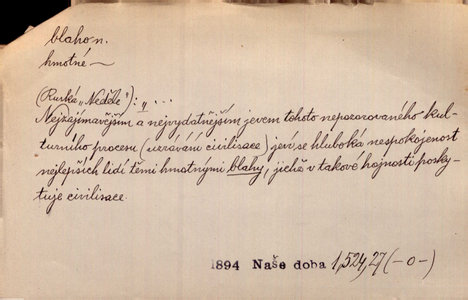 blaho n.
hmotné ~
(Ruská „Neděle"): „ ...
Nejzajímavějším a nejvydatnějším jevem tohoto nepozorovaného kul-
turního procesu (                civilisace) jeví se hluboká nespokojenost
nejlepších lidí těmi hmotnými blahy, jichž v takové hojnosti posky-
tuje civilisace.
1894 Naše doba 1,524,27 (–o–)